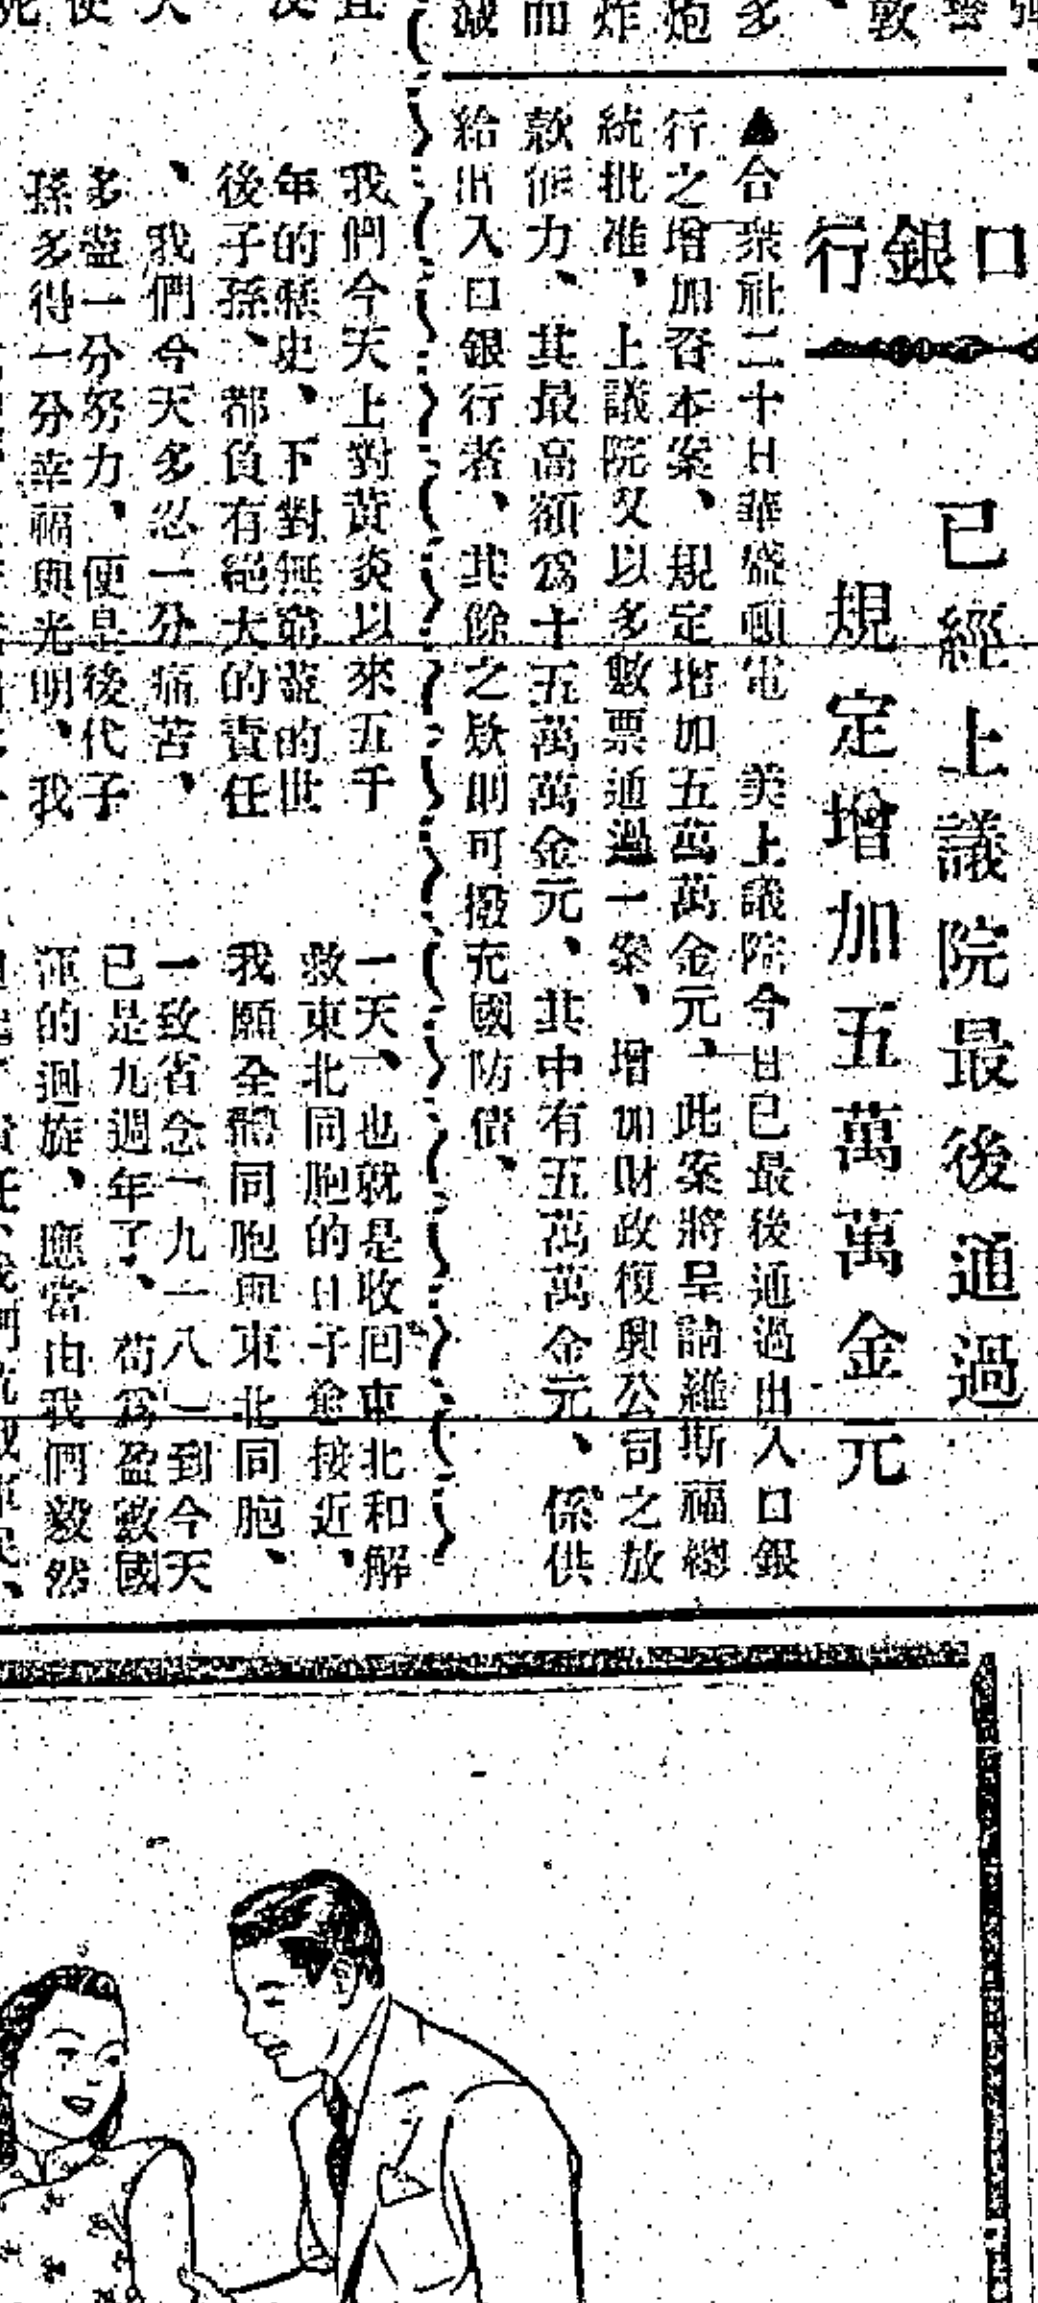 口銀行
已經上議院最後通過
規定增加五萬萬金元
▲合衆社二十日華盛頓電　美上議院今日已最後通過出入口銀
行之增加資本案、規定增加五萬萬金元、此案將呈請羅斯福總
統批准、上議院又以多數票通過一案、增加財政復興公司之放
款能力、其最高額爲十五萬萬金元、其中有五萬萬金元、係供
給出入口銀行者、其餘之款則可撥充國防借、
我們今天上對黃炎以來五千
年的歷史、下對無窮盡的世
後子孫、都負有絕大的責任
、我們今天多忍一分痛苦、
多盡一分努力、便是後代子
孫多得一分幸福與光明、我
一天、也就是收回東北和解
救東北同胞的日子愈接近、
我願全體同胞與東北同胞、
一致省念一九一八一到今天
已是九週年了、苟爲盈數國
運的迴旋、應當由我們毅然